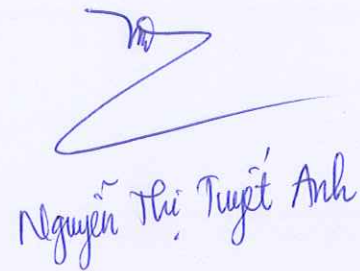 Nguyễn Thị Tuyết Anh